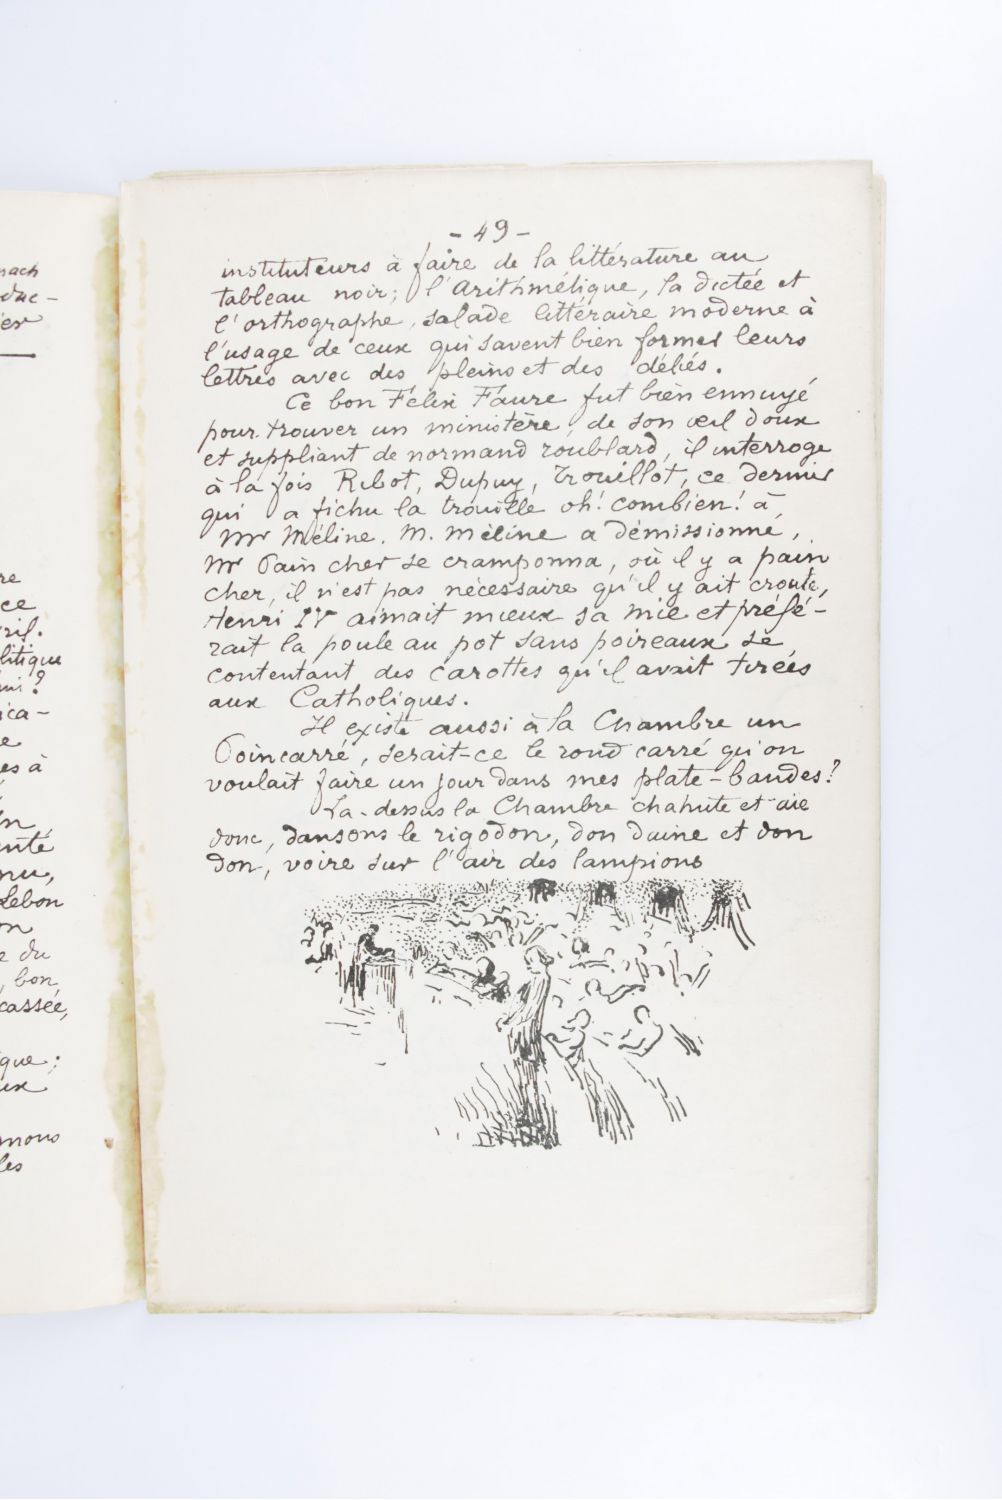 nach
duc-
er
re
ce
ril.
litique
ni?
ica-
e
es à
n
nté
nu,
Lebon
on
e du
, bon
cassée,
que;
ux
mons
les
- 49 -
instituteurs à faire de la littérature au
tableau noir; l'arithmétique, la dictée et
l'orthographe, salade littéraire moderne à
l'usage de ceux qui savent bien former leurs
lettres avec des pleins et des déliés.
Ce bon Félix Faure fut bien ennuyé
pour trouver un ministère, de son œil doux
et suppliant de normand roublard, il interroge
à la fois Ribot, Dupuy, Trouillot, ce dernier
qui a fichu la trouille oh! combien! à
Mr Méline. M. Méline a démissionné,
Mr Pain cher se cramponna, où il y a pain
cher, il n'est pas nécessaire qu'il y ait croute,
Henri IV aimait mieux sa mie et préfé-
rait la poule au pot sans poireaux se
contentant des carottes qu'il avait tirées
aux Catholiques.
Il existe aussi à la Chambre un
Poincarré, serait-ce le rond carré qu'on
voulait faire un jour dans mes plate-bandes?
La-dessus la Chambre chahute et aïe
donc, dansons le rigodon, don daine et don
don, voire sur l'air des lampions